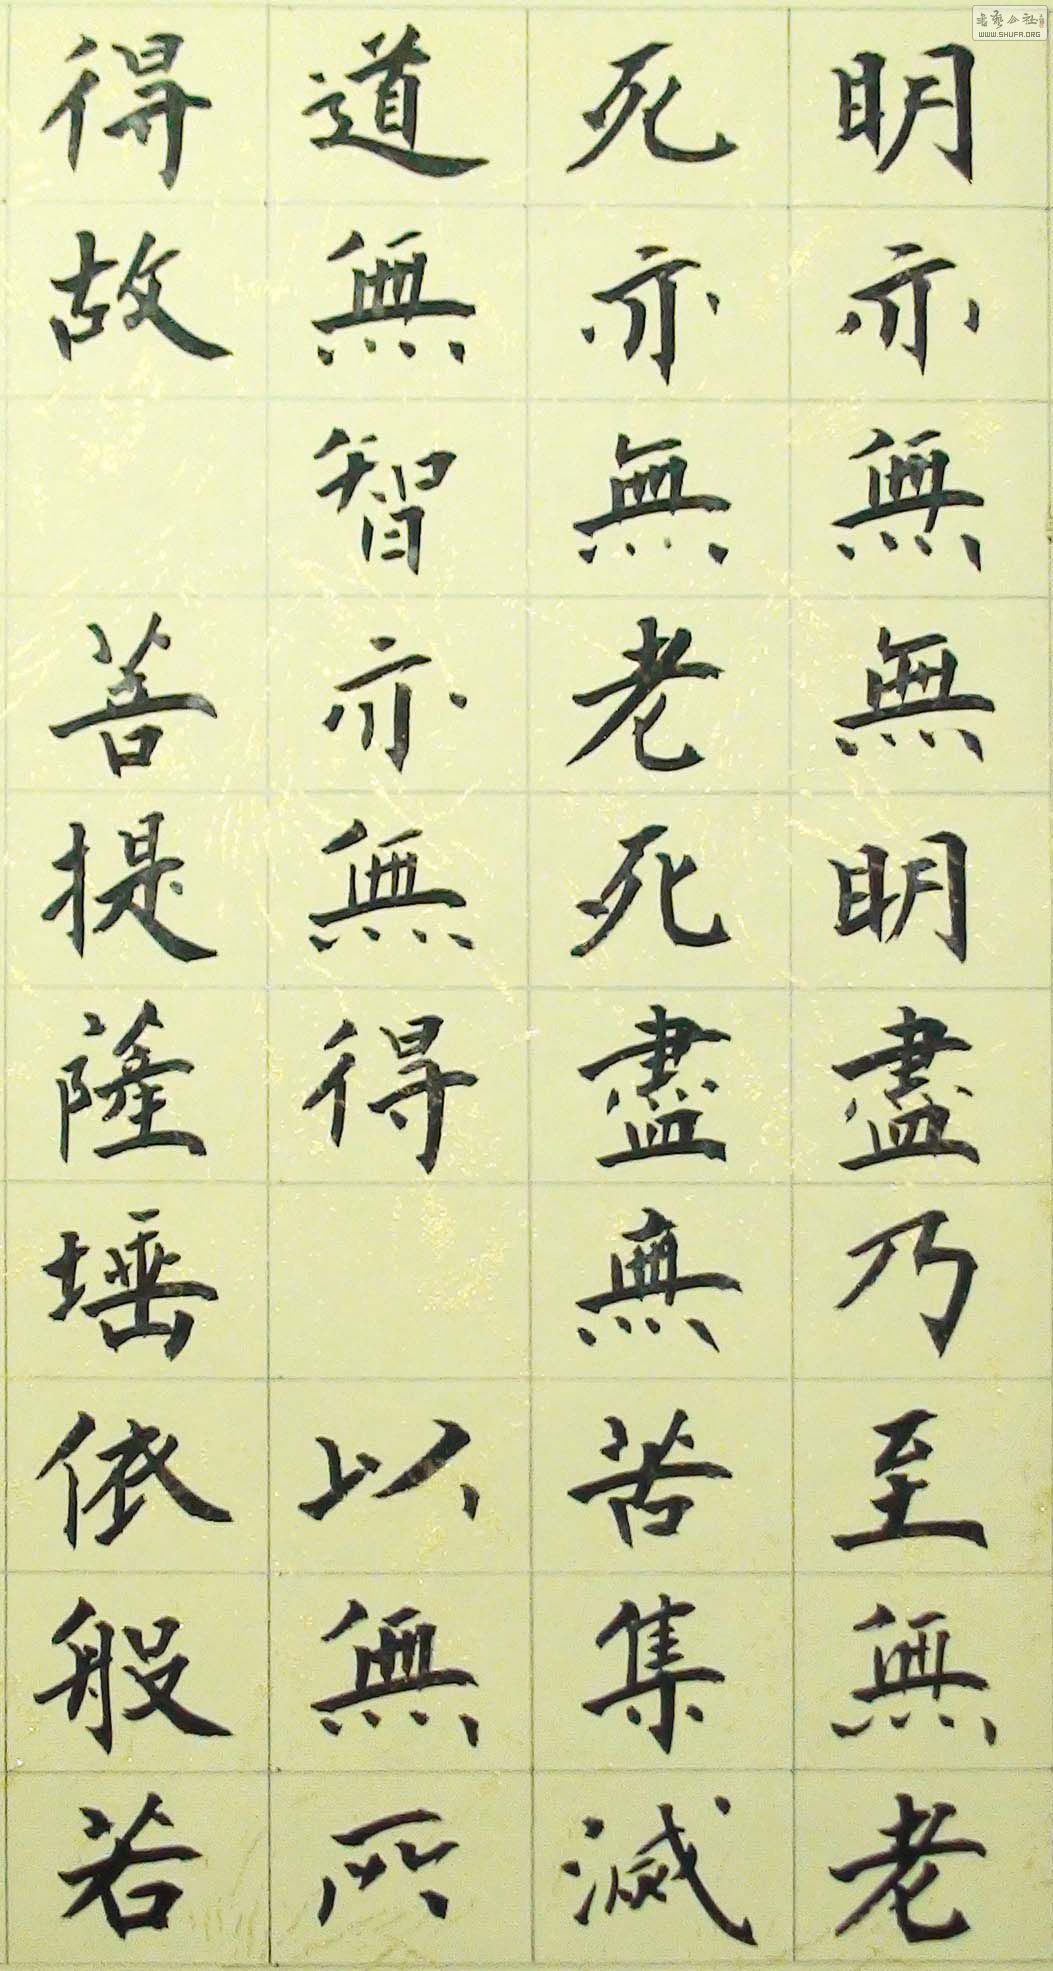 明亦無無明盡乃至無老
死亦無老死盡無苦集滅
道無智亦無得 以無所
得故 菩提薩埵依般若
書藝公社
WWW.SHUFA.ORG